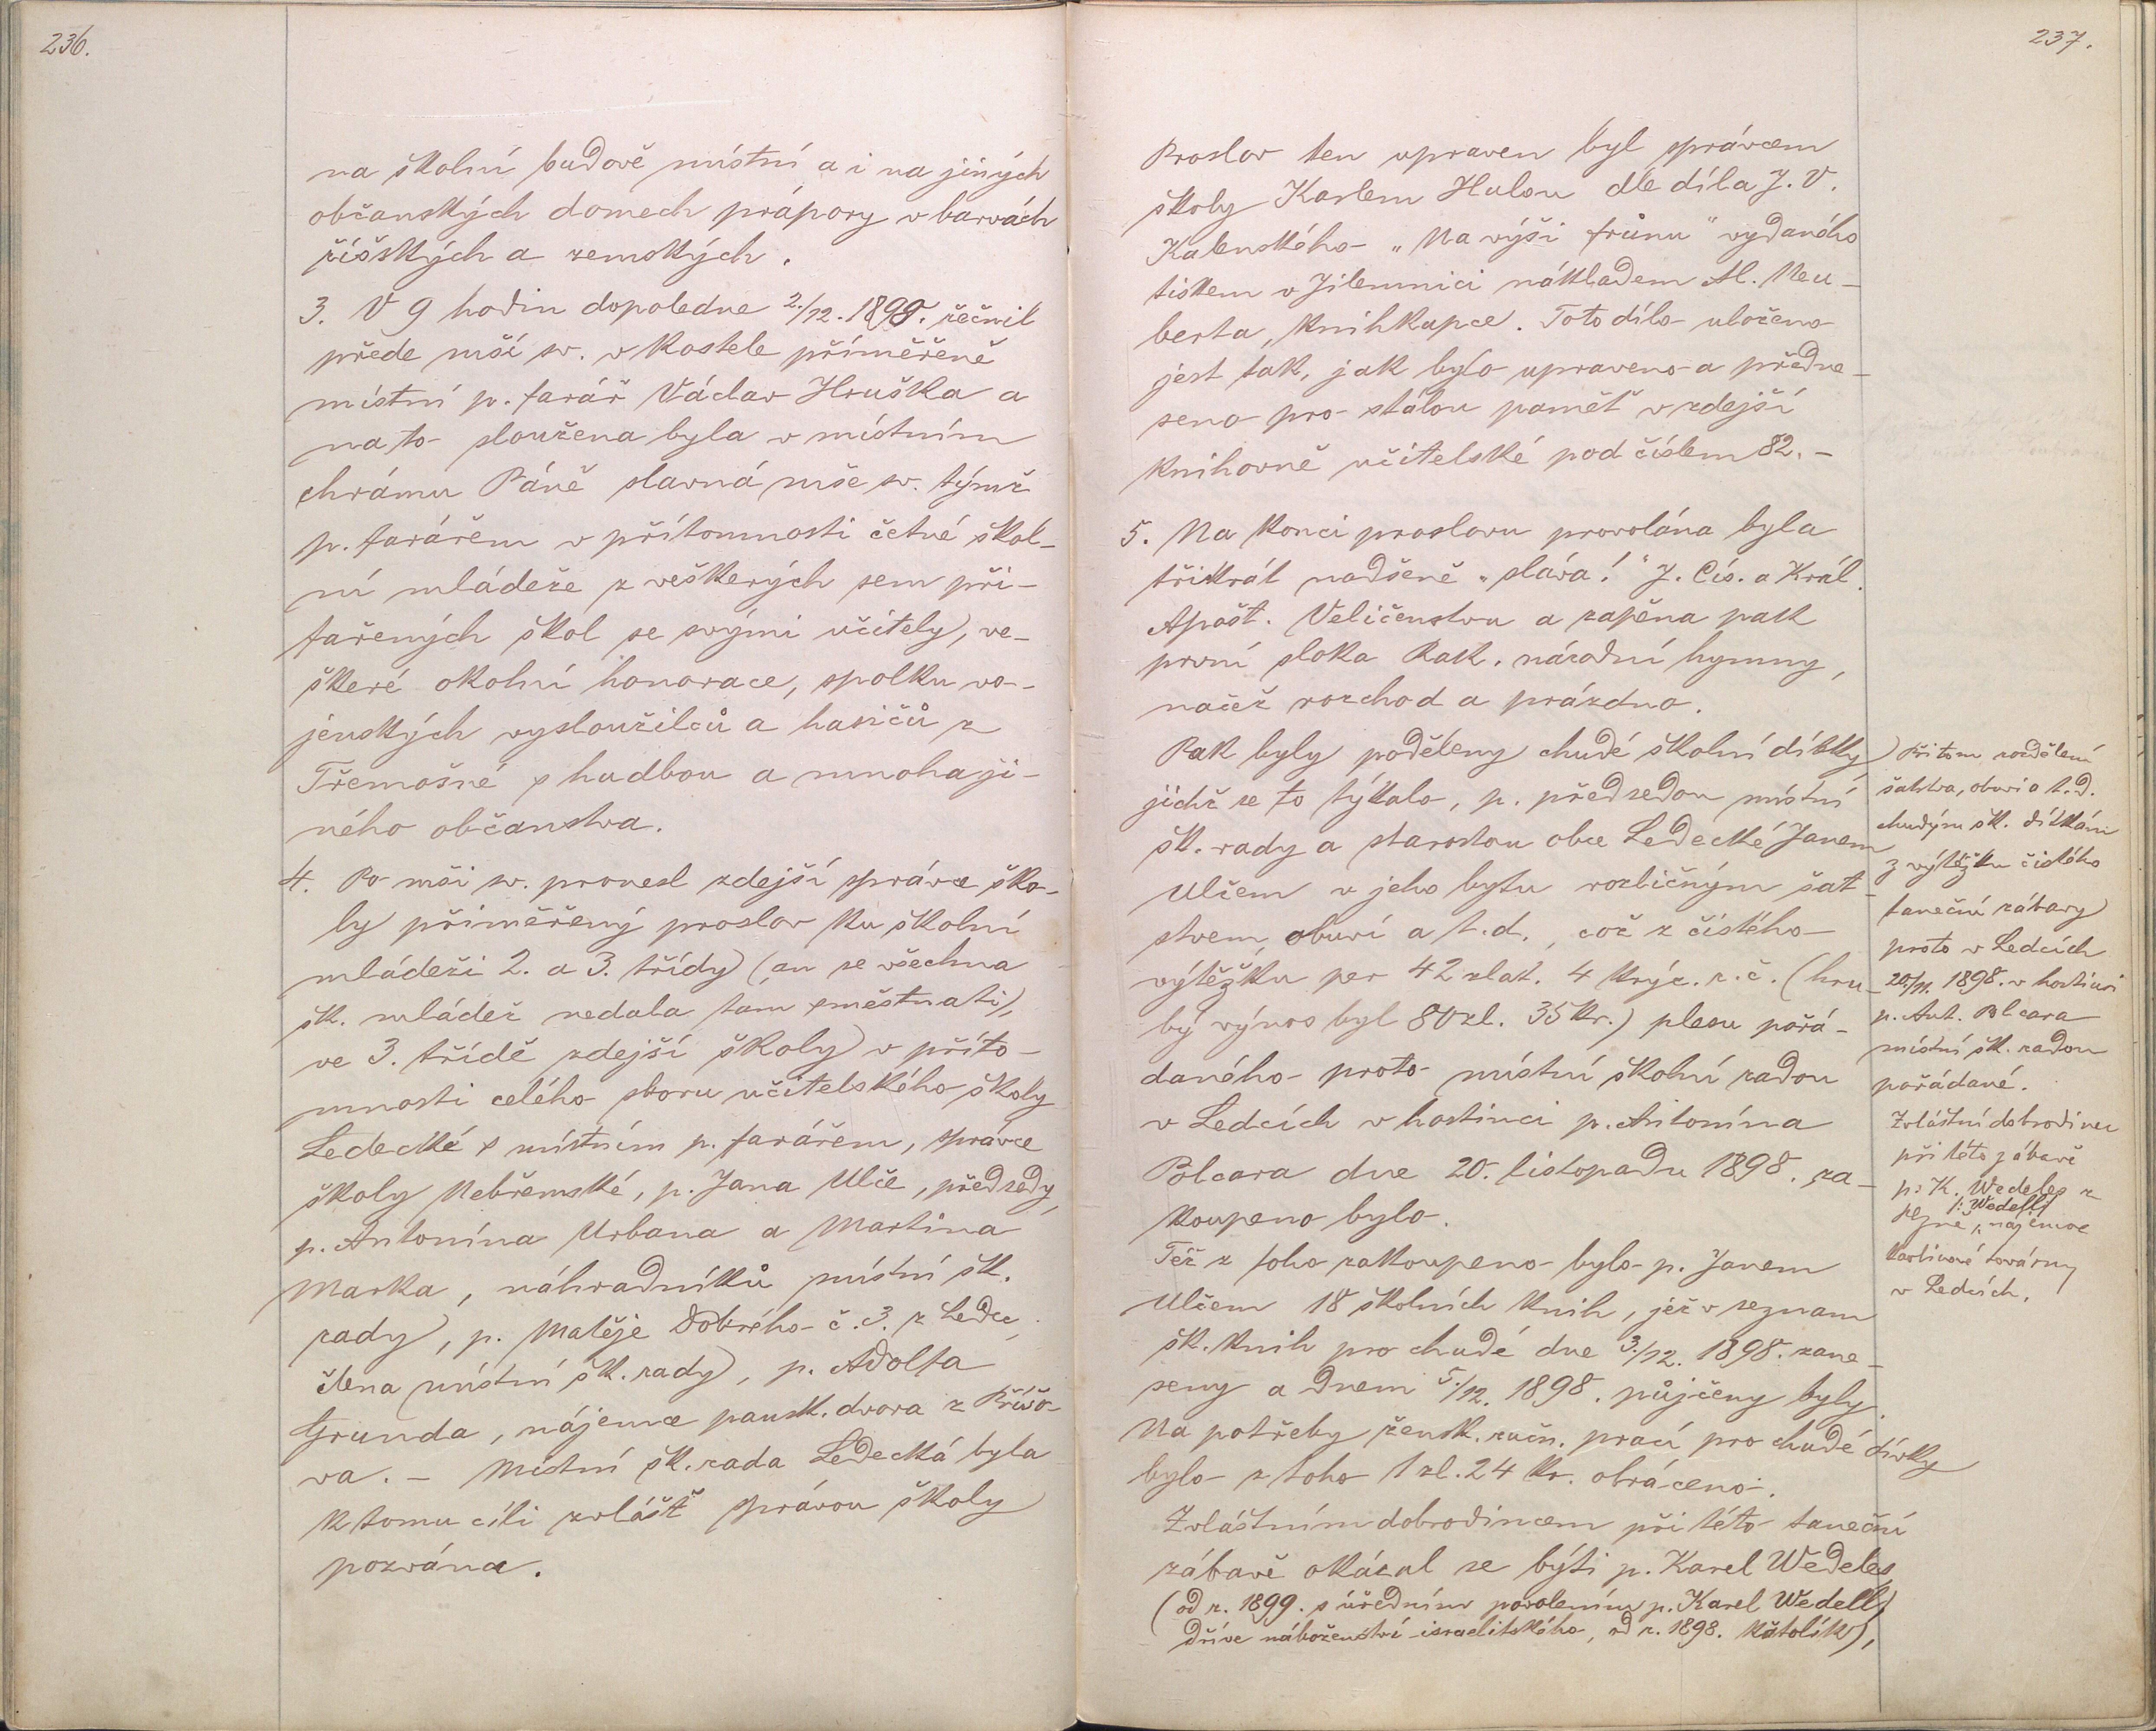 236.
na školní budově místní a i na jiných
občanských domech prápory v barvách
říšských a zemských.
3. V 9 hodin dopoledne 2./12. 1898. řečnil
přede mší sv. v kostele příměřeně
místní p. farář Václav Hruška a
na to sloužena byla v místním
chrámu Páně slavná mše sv. týmž
p. farářem v přítomnosti četné škol-
ní mládeže z veškerých sem při-
fařených škol se svými učitely, ve-
škeré okolní honorace, spolku vo-
jenských vysloužilců a hasičů z
Třemošné s hudbou a mnoha ji-
ného občanstva.
4. Po mši sv. pronesl zdejší správce ško-
ly přiměřený proslov ku školní
mládeži 2. a 3. třídy (an se všechna
šk. mládež nedala tam směstnati),
ve 3. třídě zdejší školy v příto-
mnosti celého sboru učitelského školy
Ledecké s místním p. farářem, správce
školy Nebřemské, p. Jana Ulče, předsedy,
p. Antonína Urbana a Martina
Marka, náhradníků místní šk.
rady, p. Matěje Dobrého č. 3. z Ledec,
člena místní šk. rady, p. Adolfa
Grunda, nájemce pansk. dvora z Příšo-
va. – Místní šk. rada Ledecká byla
k tomu cíli zvlášť správou školy
pozvána.
237.
Proslov ten upraven byl správcem
školy Karlem Hulou dle díla J. V.
Kalenského "Na výši trůnu" vydaného
tiskem v Jilemnici nákladem Al. Neu-
berta, knihkupce. Toto dílo uloženo
jest tak, jak bylo upraveno a předne-
seno pro stálou paměť v zdejší
knihovně učitelské pod číslem 82. –
5. Na konci proslovu provolána byla
třikrát nadšeně "sláva!" J. Cís. a Král.
Apošt. Veličenstvu a zapěna pak
první sloka Rak. národní hymny,
načež rozchod a prázdno.
Pak byly poděleny chudé školní dítky,
jichž se to týkalo, p. předsedou místní
šk. rady a starostou obce Ledecké Janem
Ulčem v jeho bytu rozličným šat-
stvem, obuví a t. d., což z čistého
výtěžku per 42 zlat. 4 krýc. r. č. (hru-
bý výnos byl 80 zl. 35 kr.) plesu pořá-
daného proto místní školní radou
v Ledcích v hostinci p. Antonína
Polcara dne 20. listopadu 1898. za-
koupeno bylo.
Též z toho zakoupeno bylo p. Janem
Ulčem 18 školních knih, jež v seznam
šk. knih pro chudé dne 3./12. 1898. zane-
seny a dnem 5./12. 1898. půjčeny byly.
Na potřeby žensk. ručn. prací pro chudé dívky
bylo z toho 1 zl. 24 kr. obráceno.
Zvláštním dobrodincem při této taneční
zábavě okázal se býti p. Karel Wedeles
(od r. 1899. s úředním povolením p. Karel Wedell,
dříve náboženství israelitského, od r. 1898. katolík),
Při tom rozdělení
šatstva, obuvi a t. d.
chudým šk. dítkám
z výtěžku čistého
taneční zábavy
proto v Ledcích
20./11. 1898. v hostinci
p. Ant. Polcara
místní šk. radou
pořádané.
Zvláštní dobrodinec
při této zábavě
p. K. Wedeles z
/: Wedell/
nájemce
továrny
v Ledcích.